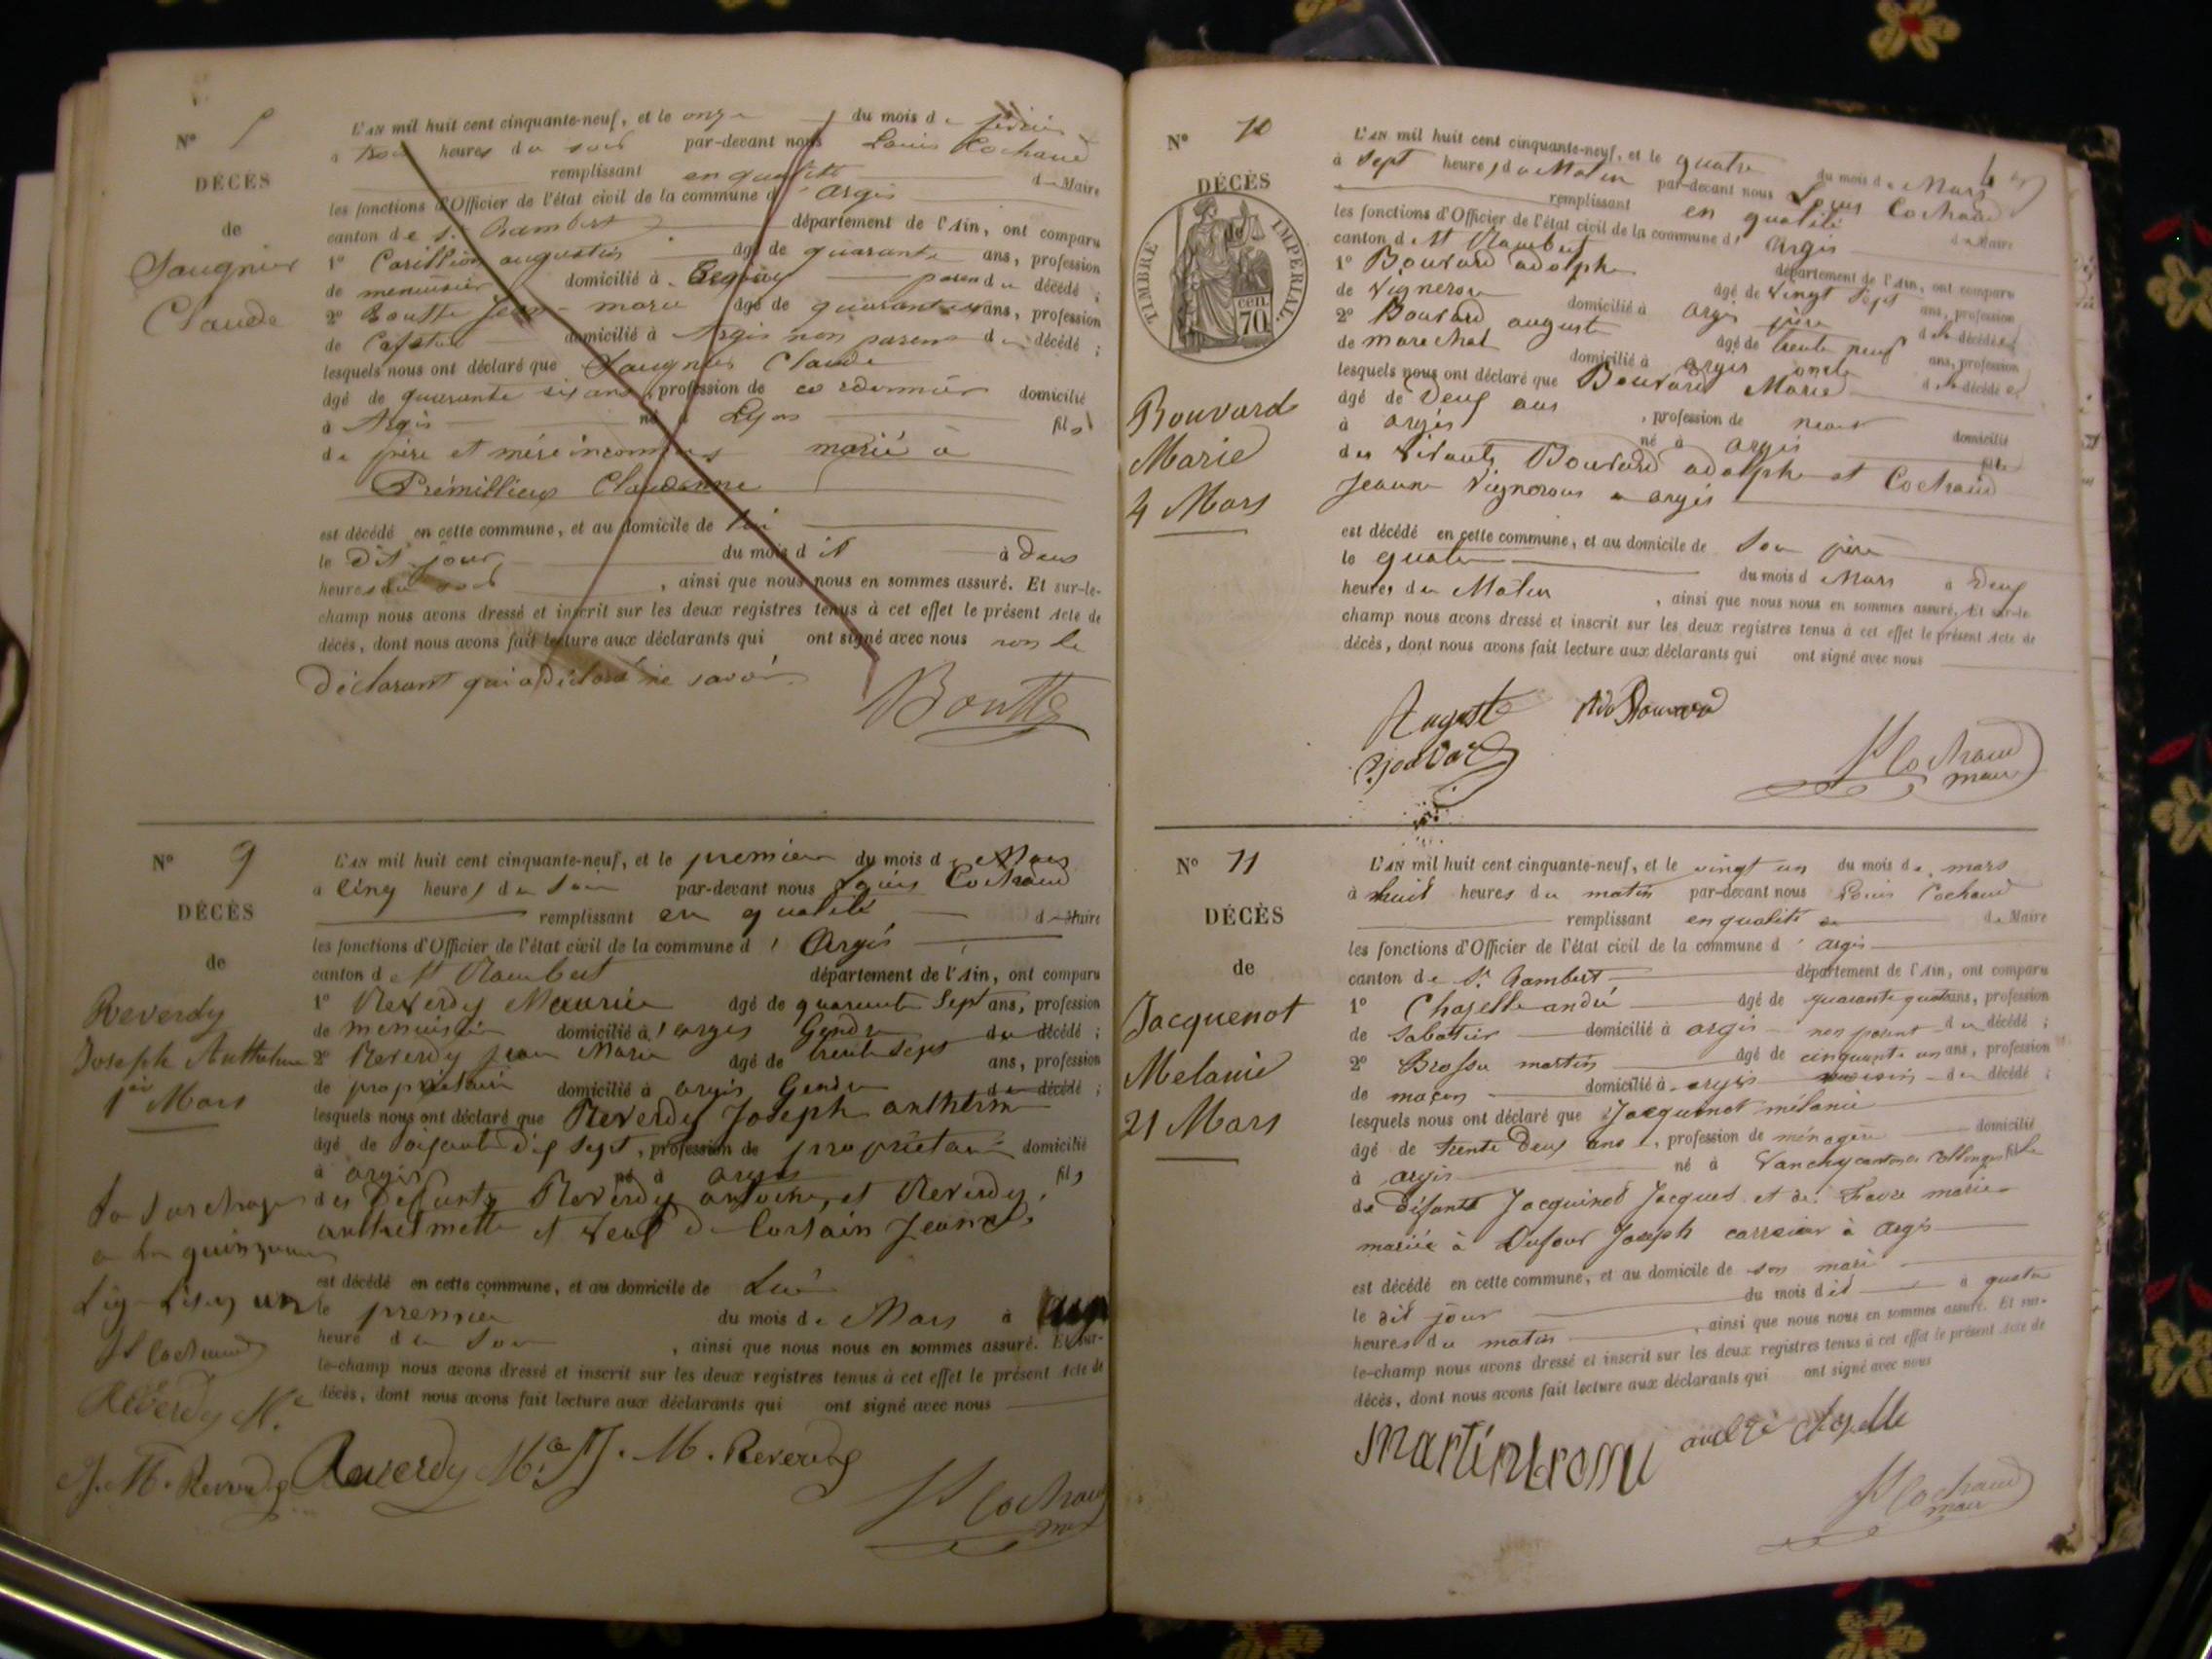 N°
DÉCÈS
de
Saugnier
Claude
L'AN mil huit cent cinquante-neuf, et le onze du mois de février
à trois heures du soir par-devant nous Louis Cochaud
remplissant en qualité de Maire
les fonctions d'Officier de l'état civil de la commune d'argis
canton de St Rambert département de l'Ain, ont comparu
1° Carillion augustin âgé de quarante ans, profession
de menuisier domicilié à parent du décédé ;
2° Boutte Jean-marie âgé de quarante ans, profession
de domicilié à Argis non parent du décédé ;
lesquels nous ont déclaré que Saugnier Claude
âgé de quarante six ans, profession de cordonnier domicilié
à Argis né à Lyon fils
de père et mère inconnus marié à
Prémillieux Claudine
est décédé en cette commune, et au domicile de lui
le dit jour du mois dit à deux
heures du soir, ainsi que nous nous en sommes assuré. Et sur-le-
champ nous avons dressé et inscrit sur les deux registres tenus à cet effet le présent Acte de
décès, dont nous avons fait lecture aux déclarants qui ont signé avec nous non le
Déclarant qui a déclaré ne savoir
Boutte
N° 9
DÉCÈS
de
Reverdy
Joseph Anthelme
1er Mars
L'AN mil huit cent cinquante-neuf, et le premier du mois de Mars
à cinq heures du soir par-devant nous Louis Cochaud
remplissant en qualité de Maire
les fonctions d'Officier de l'état civil de la commune d'Argis
canton de St Rambert département de l'Ain, ont comparu
1° Reverdy Maurice âgé de quarante Sept ans, profession
de menuisier domicilié à argis Gendre du décédé ;
2° Reverdy jean Marie âgé de trente Sept ans, profession
de propriétaire domicilié à argis Gendre du décédé ;
lesquels nous ont déclaré que Reverdy Joseph anthelm
âgé de soixante dix sept, profession de propriétaire domicilié
à argis né à argis fils
des Défunts Reverdy antoine, et Reverdy
anthelmette et veuf de Jeanne
est décédé en cette commune, et au domicile de Lui
le premier du mois de Mars à
heure du soir, ainsi que nous nous en sommes assuré. Et sur-
le-champ nous avons dressé et inscrit sur les deux registres tenus à cet effet le présent Acte de
décès, dont nous avons fait lecture aux déclarants qui ont signé avec nous
La surcharge
a la quinzieme
Lig Lisez un
L Cochaud
Reverdy Mce
J. M. Reverdy
Reverdy Mce J. M. Reverdy
L Cochaud
maire
N° 10
DÉCÈS
de
TIMBRE IMPERIAL
70 cen.
Bouvard
Marie
4 Mars
L'AN mil huit cent cinquante-neuf, et le quatre du mois de Mars
à sept heures du Matin par-devant nous Louis Cochaud
remplissant en qualité de Maire
les fonctions d'Officier de l'état civil de la commune d'argis
canton de St Rambert département de l'Ain, ont comparu
1° Bouvard adolphe âgé de vingt sept ans, profession
de vigneron domicilié à argis père de la décédée
2° Bouvard auguste âgé de trente neuf ans, profession
de marechal domicilié à argis oncle de la décédée
lesquels nous ont déclaré que Bouvard Marie
âgé de Deux ans, profession de domicilié
à argis né à argis fille
des vivants Bouvard adolphe et Cochaud
Jeanne vignerons a argis
est décédé en cette commune, et au domicile de son père
le quatre du mois de Mars à Deux
heures du Matin, ainsi que nous nous en sommes assuré. Et sur-le
champ nous avons dressé et inscrit sur les deux registres tenus à cet effet le présent Acte de
décès, dont nous avons fait lecture aux déclarants qui ont signé avec nous
August
Bouvard
Ado Bouvard
L Cochaud
maire
N° 11
DÉCÈS
de
Jacquenot
Melanie
21 Mars
L'AN mil huit cent cinquante-neuf, et le vingt un du mois de mars
à huit heures du matin par-devant nous Louis Cochaud
remplissant en qualité de Maire
les fonctions d'Officier de l'état civil de la commune d'argis
canton de St Rambert département de l'Ain, ont comparu
1° Chapelle andré âgé de quarante quatre ans, profession
de sabotier domicilié à argis non parent du décédé ;
2° Brossu martin âgé de cinquante un ans, profession
de maçon domicilié à argis voisin du décédé ;
lesquels nous ont déclaré que Jacquinot mélanie
âgé de trente Deux ans, profession de ménagère domicilié
à argis né à Vanchy canton de Collonges fille
de défunt Jacquinot Jacques et de Favre marie
mariée à Dufour Joseph carrier à argis
est décédé en cette commune, et au domicile de son mari
le dit jour du mois dit à quatre
heures du matin, ainsi que nous nous en sommes assuré. Et sur-
le-champ nous avons dressé et inscrit sur les deux registres tenus à cet effet le présent Acte de
décès, dont nous avons fait lecture aux déclarants qui ont signé avec nous
martin brossu andré chapelle
L Cochaud
maire